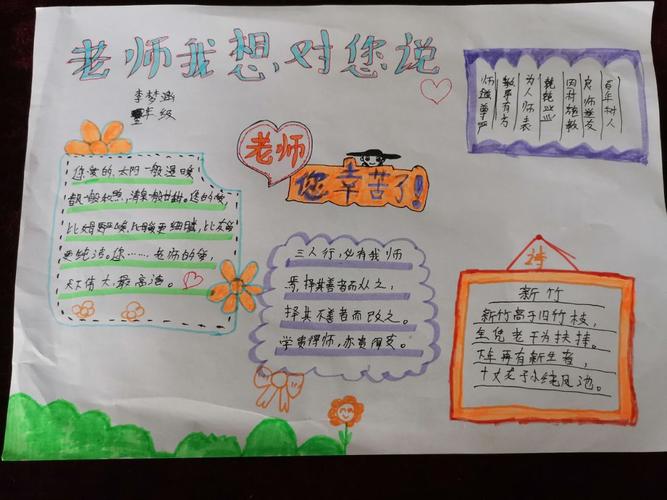 老师我想,对您说
李梦涵
年级
老师
您辛苦了!
百年树人
良师益友
因材施教
兢兢业业
为人师表
教导有方
师道尊严
您爱的,太阳一般温暖
春风般和煦,清泉般甘甜。您的爱,
比父爱严峻,比母爱更细腻,比友爱
更纯洁。您……老师的爱,
天下伟大,最高洁。
三人行,必有我师
焉,择其善者而从之,
择其不善者而改之。
学贵得师,亦贵得友。
诗
新竹
新竹高于旧竹枝,
全凭老干为扶持。
下年再有新生者,
十丈龙子水绕凤池。